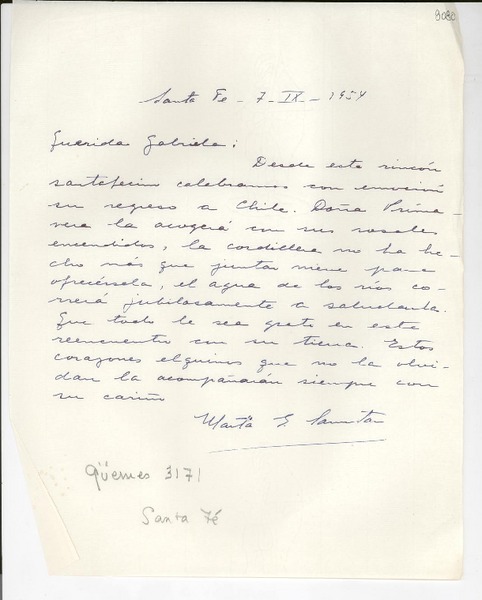 8080
Santa Fe - 7 - IX - 1954
Querida Gabriela:
Desde este rincón
santafecino celebramos con emoción
su regreso a Chile. Doña Prima-
vera la acogerá con sus rosales
encendidos, la cordillera no ha he-
cho más que juntar nieve para
ofrecérsela, el agua de los ríos co-
rrerá jubilosamente a saludarla.
Que todo le sea grato en este
reencuentro con su tierra. Estos
corazones elquinos que no la olvi-
dan la acompañarán siempre con
su cariño
Marta E. Samatan
Güemes 3171
Santa Fé